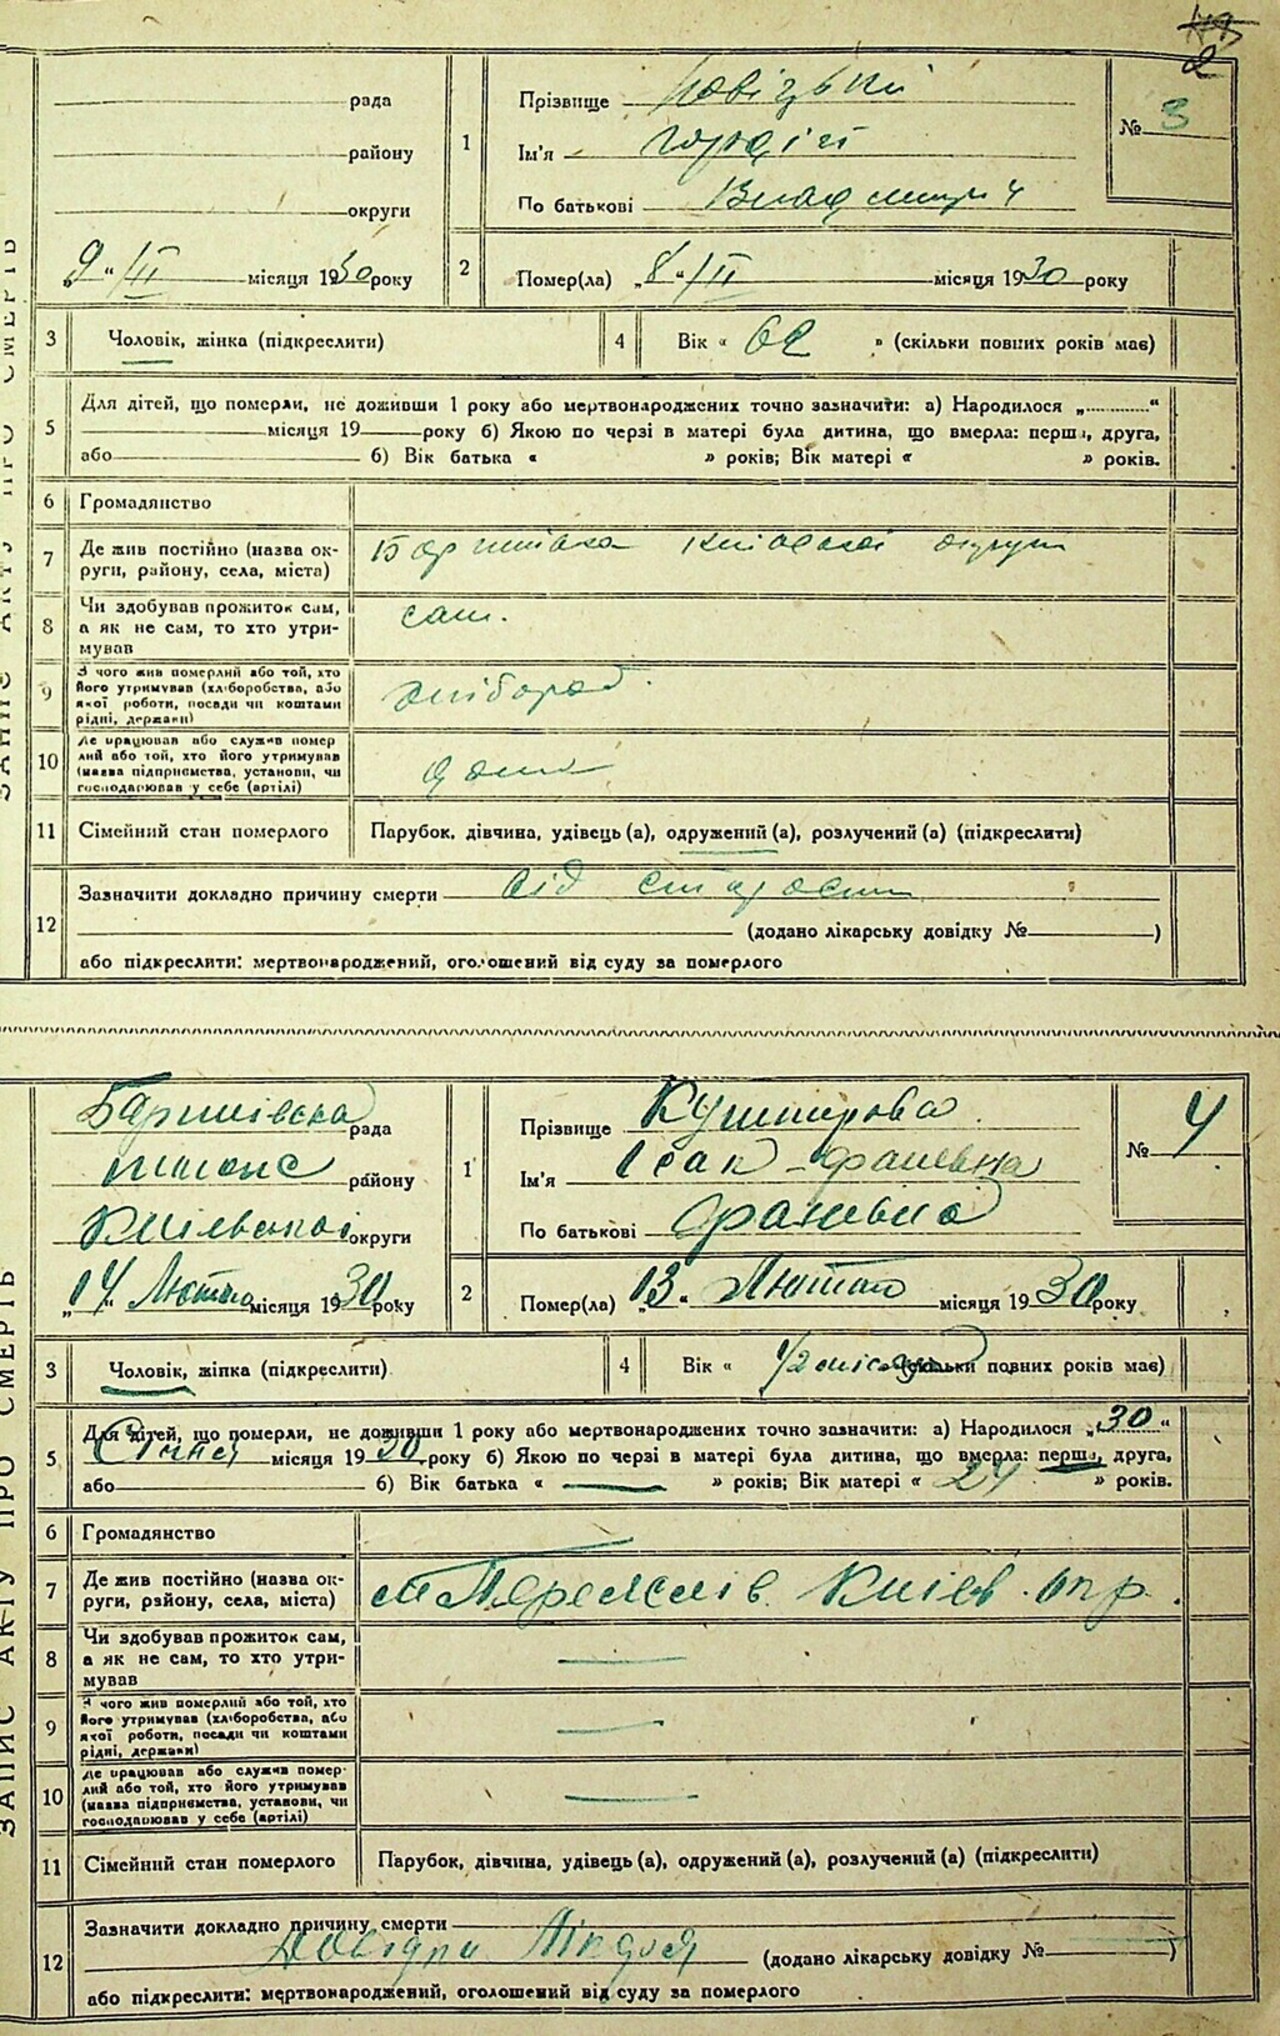 2
рада
району
округи
„9“ /III місяця 1930 року
1
Прізвище
Ім'я
По батькові
№ 3
2
Помер(ла) „8“ /II місяця 1930 року
3
Чоловік, жінка (підкреслити)
4
Вік « 62 » (скільки повних років має)
5
Для дітей, що померли, не доживши 1 року або мертвонароджених точно зазначити: а) Народилося „ “
місяця 19 року б) Якою по черзі в матері була дитина, що вмерла: перша, друга,
або б) Вік батька « » років; Вік матері « » років.
6
Громадянство
7
Де жив постійно (назва ок-
руги, району, села, міста)
Київської округи
8
Чи здобував прожиток сам,
а як не сам, то хто утри-
мував
сам.
9
З чого жив померлий або той, хто
його утримував (хліборобства, або
якої роботи, посади чи коштами
рідні, держави)
10
Де працював або служив помер
лий або той, хто його утримував
(назва підприємства, установи, чи
господарював у себе (артілі)
дома
11
Сімейний стан померлого
Парубок, дівчина, удівець (а), одружений (а), розлучений (а) (підкреслити)
12
Зазначити докладно причину смерти від старости
(додано лікарську довідку № )
або підкреслити: мертвонароджений, оголошений від суду за померлого
ЗАПИС АКТУ ПРО СМЕРТЬ
рада
району
Київської округи
„14“ Лютого місяця 1930 року
1
Прізвище Кушнірова
Ім'я Ісак
По батькові
№ 4
2
Помер(ла) „13“ Лютого місяця 1930 року
3
Чоловік, жінка (підкреслити)
4
Вік « 1/2 місяця (скільки повних років має)
5
Для дітей, що померли, не доживши 1 року або мертвонароджених точно зазначити: а) Народилося „30“
Січня місяця 1930 року б) Якою по черзі в матері була дитина, що вмерла: перша, друга,
або б) Вік батька « — » років; Вік матері « 24 » років.
6
Громадянство
7
Де жив постійно (назва ок-
руги, району, села, міста)
Київ. окр.
8
Чи здобував прожиток сам,
а як не сам, то хто утри-
мував
—
9
З чого жив померлий або той, хто
його утримував (хліборобства, або
якої роботи, посади чи коштами
рідні, держави)
—
10
Де працював або служив помер-
лий або той, хто його утримував
(назва підприємства, установи, чи
господарював у себе (артілі)
—
11
Сімейний стан померлого
Парубок, дівчина, удівець (а), одружений (а), розлучений (а) (підкреслити)
12
Зазначити докладно причину смерти
(додано лікарську довідку № )
або підкреслити: мертвонароджений, оголошений від суду за померлого
ЗАПИС АКТУ ПРО СМЕРТЬ